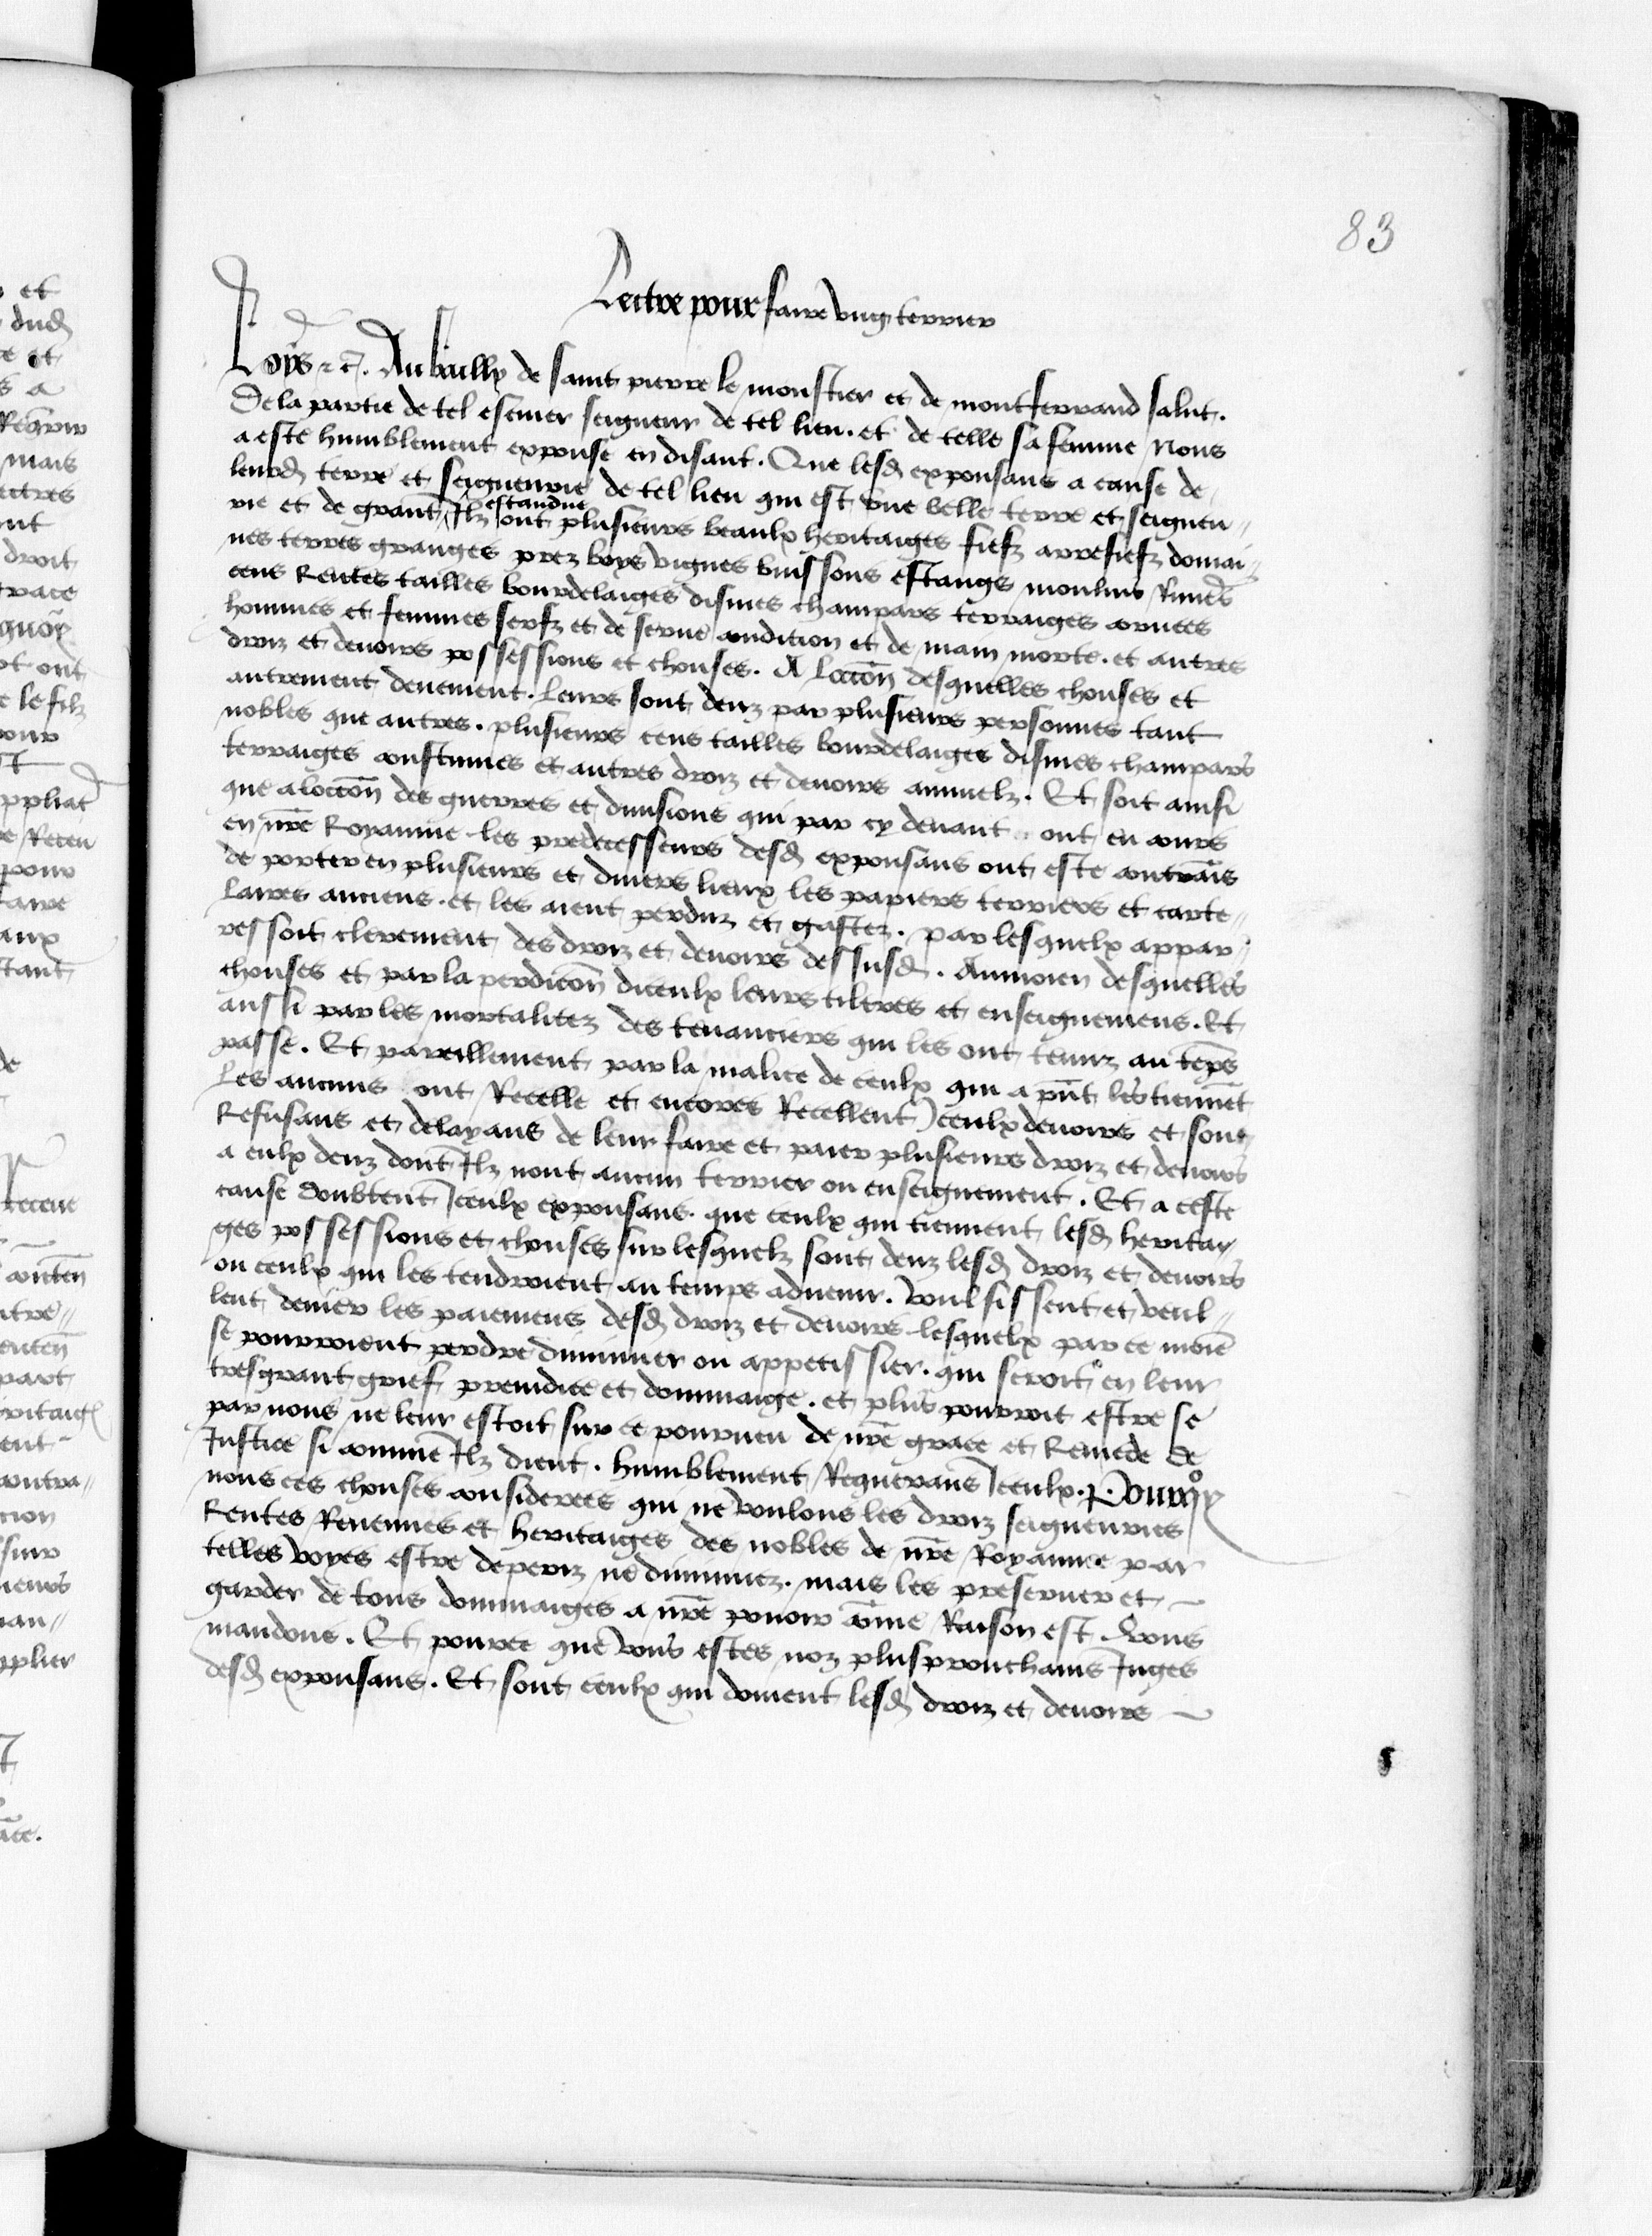 83
Lectre pour faire ung terrier
Loys etc. Au bailly de saint pierre le monstier et de montferrand salut.
De la partie de tel escuier seigneur de tel lieu. et de telle sa femme Nous
a este humblement expouse en disant. Que lesd exposans a cause de
leurd terre et seigneurie de tel lieu qui est une belle terre et seigneu-
rie et de grant estandue Ilz ont plusieurs beaulx heritaiges fiefz arrefiefz domai-
nes terres granges prez boys vignes buissons estangs moulins Rivieres
cens Rentes tailles bourdelaiges dismes champars terraiges corvees
hommes et femmes serfz et de serve condition et de main morte. et autres
droiz et devoirs possessions et chouses. A loccōn desquelles chouses et
autrement deuement. Leurs sont deuz par plusieurs personnes tant
nobles que autres. plusieurs cens tailles bourdelaiges dismes champars
terraiges coustumes et autres droiz et devoirs annuelz. Et soit ainsi
que a loccōn des guerres et divisions qui par cy devant ont eu cours
en nrē Royaume les predecesseurs desd expousans ont este contrains
de porter en plusieurs et divers lieux les papiers terriers et carte-
laires anciens. et les aient perduz et gastez. par lesquelx appar-
ressoit clerement des droiz et devoirs dessusd. Au moien desquelles
chouses et par la perdicōn diceulx leurs tiltres et enseignemens. Et
aussi par les mortalitez des tenanciers qui les ont tenuz au tēps
passe. Et pareillement par la malice de ceulx qui a pn̄t les tiennēt
Les aucuns ont Recelle et encores Recellent Iceulx devoirs et sont
Refusans et delayans de leur faire et paier plusieurs droiz et devoirs
a eulx deuz dont Ilz nont aucun terrier ou enseignement. Et a ceste
cause doubtent Iceulx expousans. que ceulx qui tiennent lesd heritai-
ges possessions et chouses sur lesquelz sont deuz lesd droiz et devoirs
ou ceulx qui les tendroient au temps advenir. voulsissent et veul-
lent denier les paiemens desd droiz et devoirs lesquelx par ce moiē
se pourroient perdre diminuer ou appetissier. qui seroit en leur
tresgrant grief preiudice et dommaige. et plus pourroit estre se
par nous ne leur estoit sur ce pourveu de nrē grace et Remede de
Justice si comme Ilz dient. humblement Requerans Iceulx. Pourquoy
nous ces chouses considerees qui ne voulons les droiz seigneuries
Rentes Revenues et heritaiges des nobles de nrē Royaume par
telles voyes estre deperiz ne diminuez. mais les preserver et
garder de tous dommaiges a nrē povoir cōme Raison est. Vous
mandons. Et pource que vous estes noz plus prouchains Juges
desd expousans. Et sont ceulx qui doivent lesd droiz et devoirs